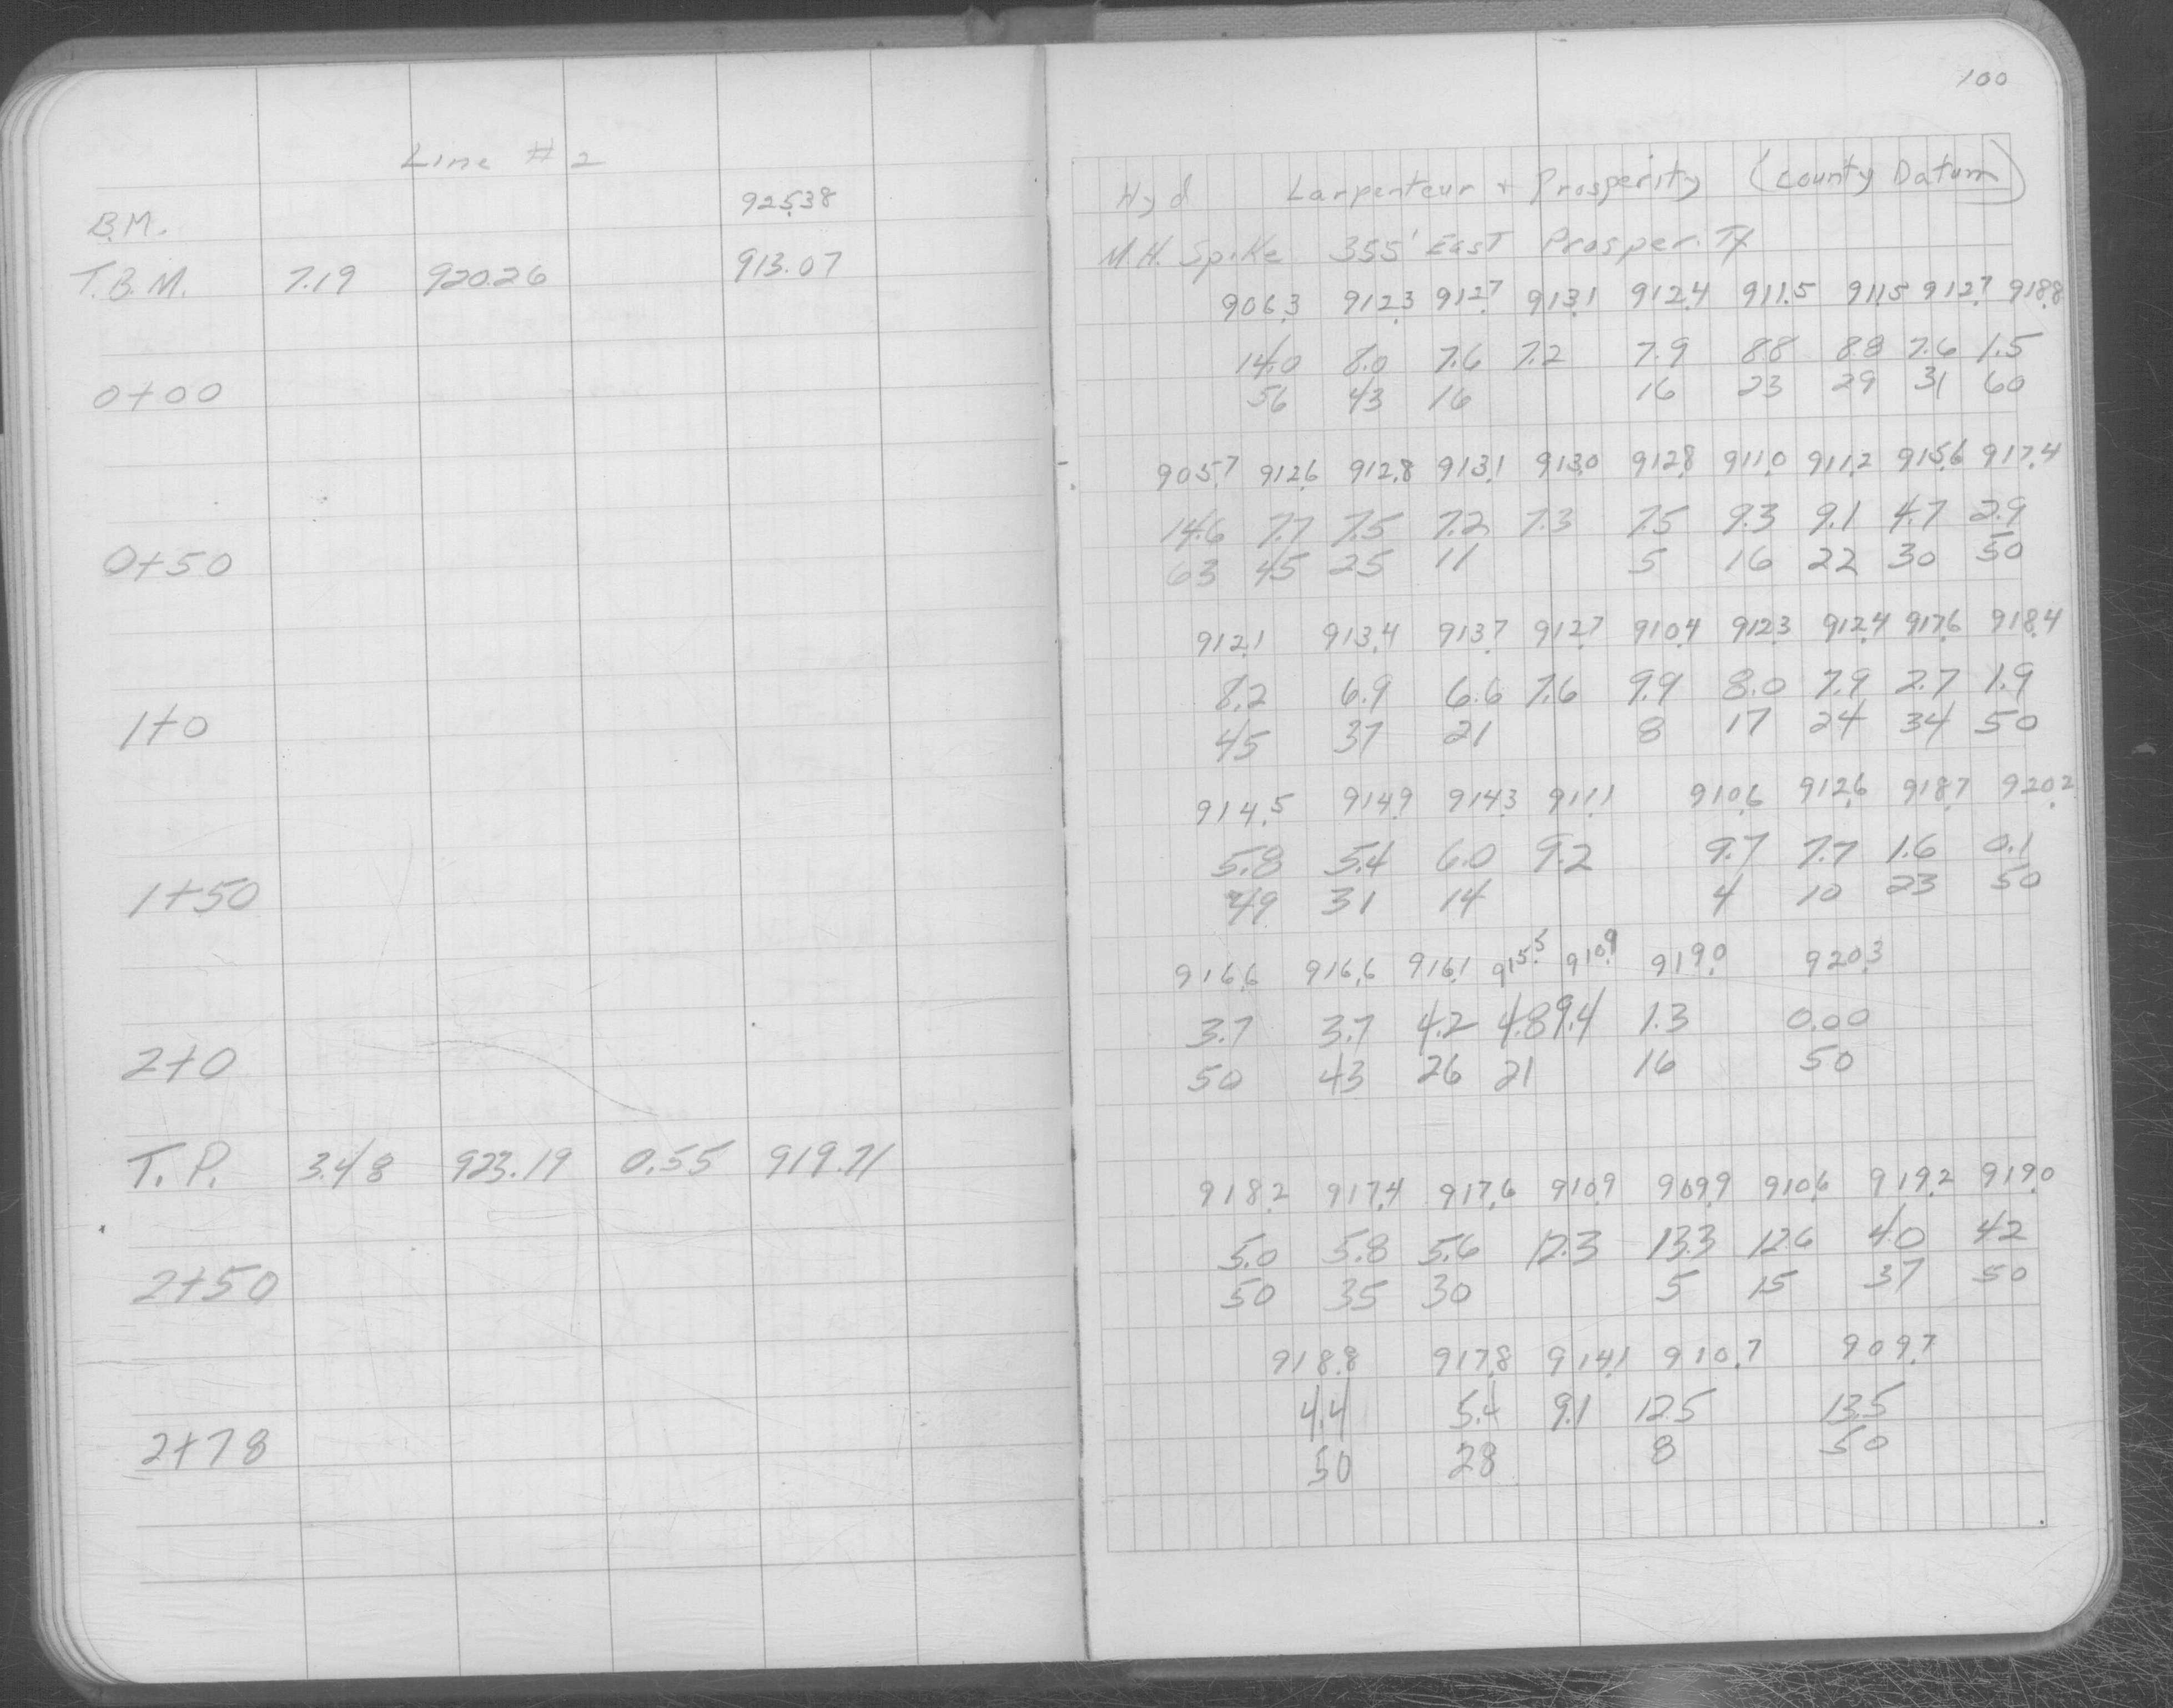 100
Line # 2
B.M. 925.38 Hyd Larpenteur + Prosperity (County Datum)
T.B.M. 7.19 920.26 913.07 M.H. Spike 355' East Prosperity
906.3 912.3 912.7 913.1 912.4 911.5 911.5 912.7 918.8
14.0 8.0 7.6 7.2 7.9 8.8 8.8 7.6 1.5
0+00 56 43 16 16 23 29 31 60
905.7 912.6 912.8 913.1 913.0 912.8 911.0 911.2 915.6 917.4
14.6 7.7 7.5 7.2 7.3 7.5 9.3 9.1 4.7 2.9
0+50 63 45 25 11 5 16 22 30 50
912.1 913.4 913.7 912.7 910.4 912.3 912.4 917.6 918.4
8.2 6.9 6.6 7.6 9.9 8.0 7.9 2.7 1.9
1+0 45 37 21 8 17 24 34 50
914.5 914.9 914.3 911.1 910.6 912.6 918.7 920.2
5.8 5.4 6.0 9.2 9.7 7.7 1.6 0.1
1+50 49 31 14 4 10 23 50
916.6 916.6 916.1 915.5 910.9 919.0 920.3
3.7 3.7 4.2 4.8 9.4 1.3 0.00
2+0 50 43 26 21 16 50
T.P. 3.48 923.19 0.55 919.71
918.2 917.4 917.6 910.9 909.9 910.6 919.2 919.0
5.0 5.8 5.6 12.3 13.3 12.6 4.0 4.2
2+50 50 35 30 5 15 37 50
918.8 917.8 914.1 910.7 909.7
4.4 5.4 9.1 12.5 13.5
2+78 50 28 8 50